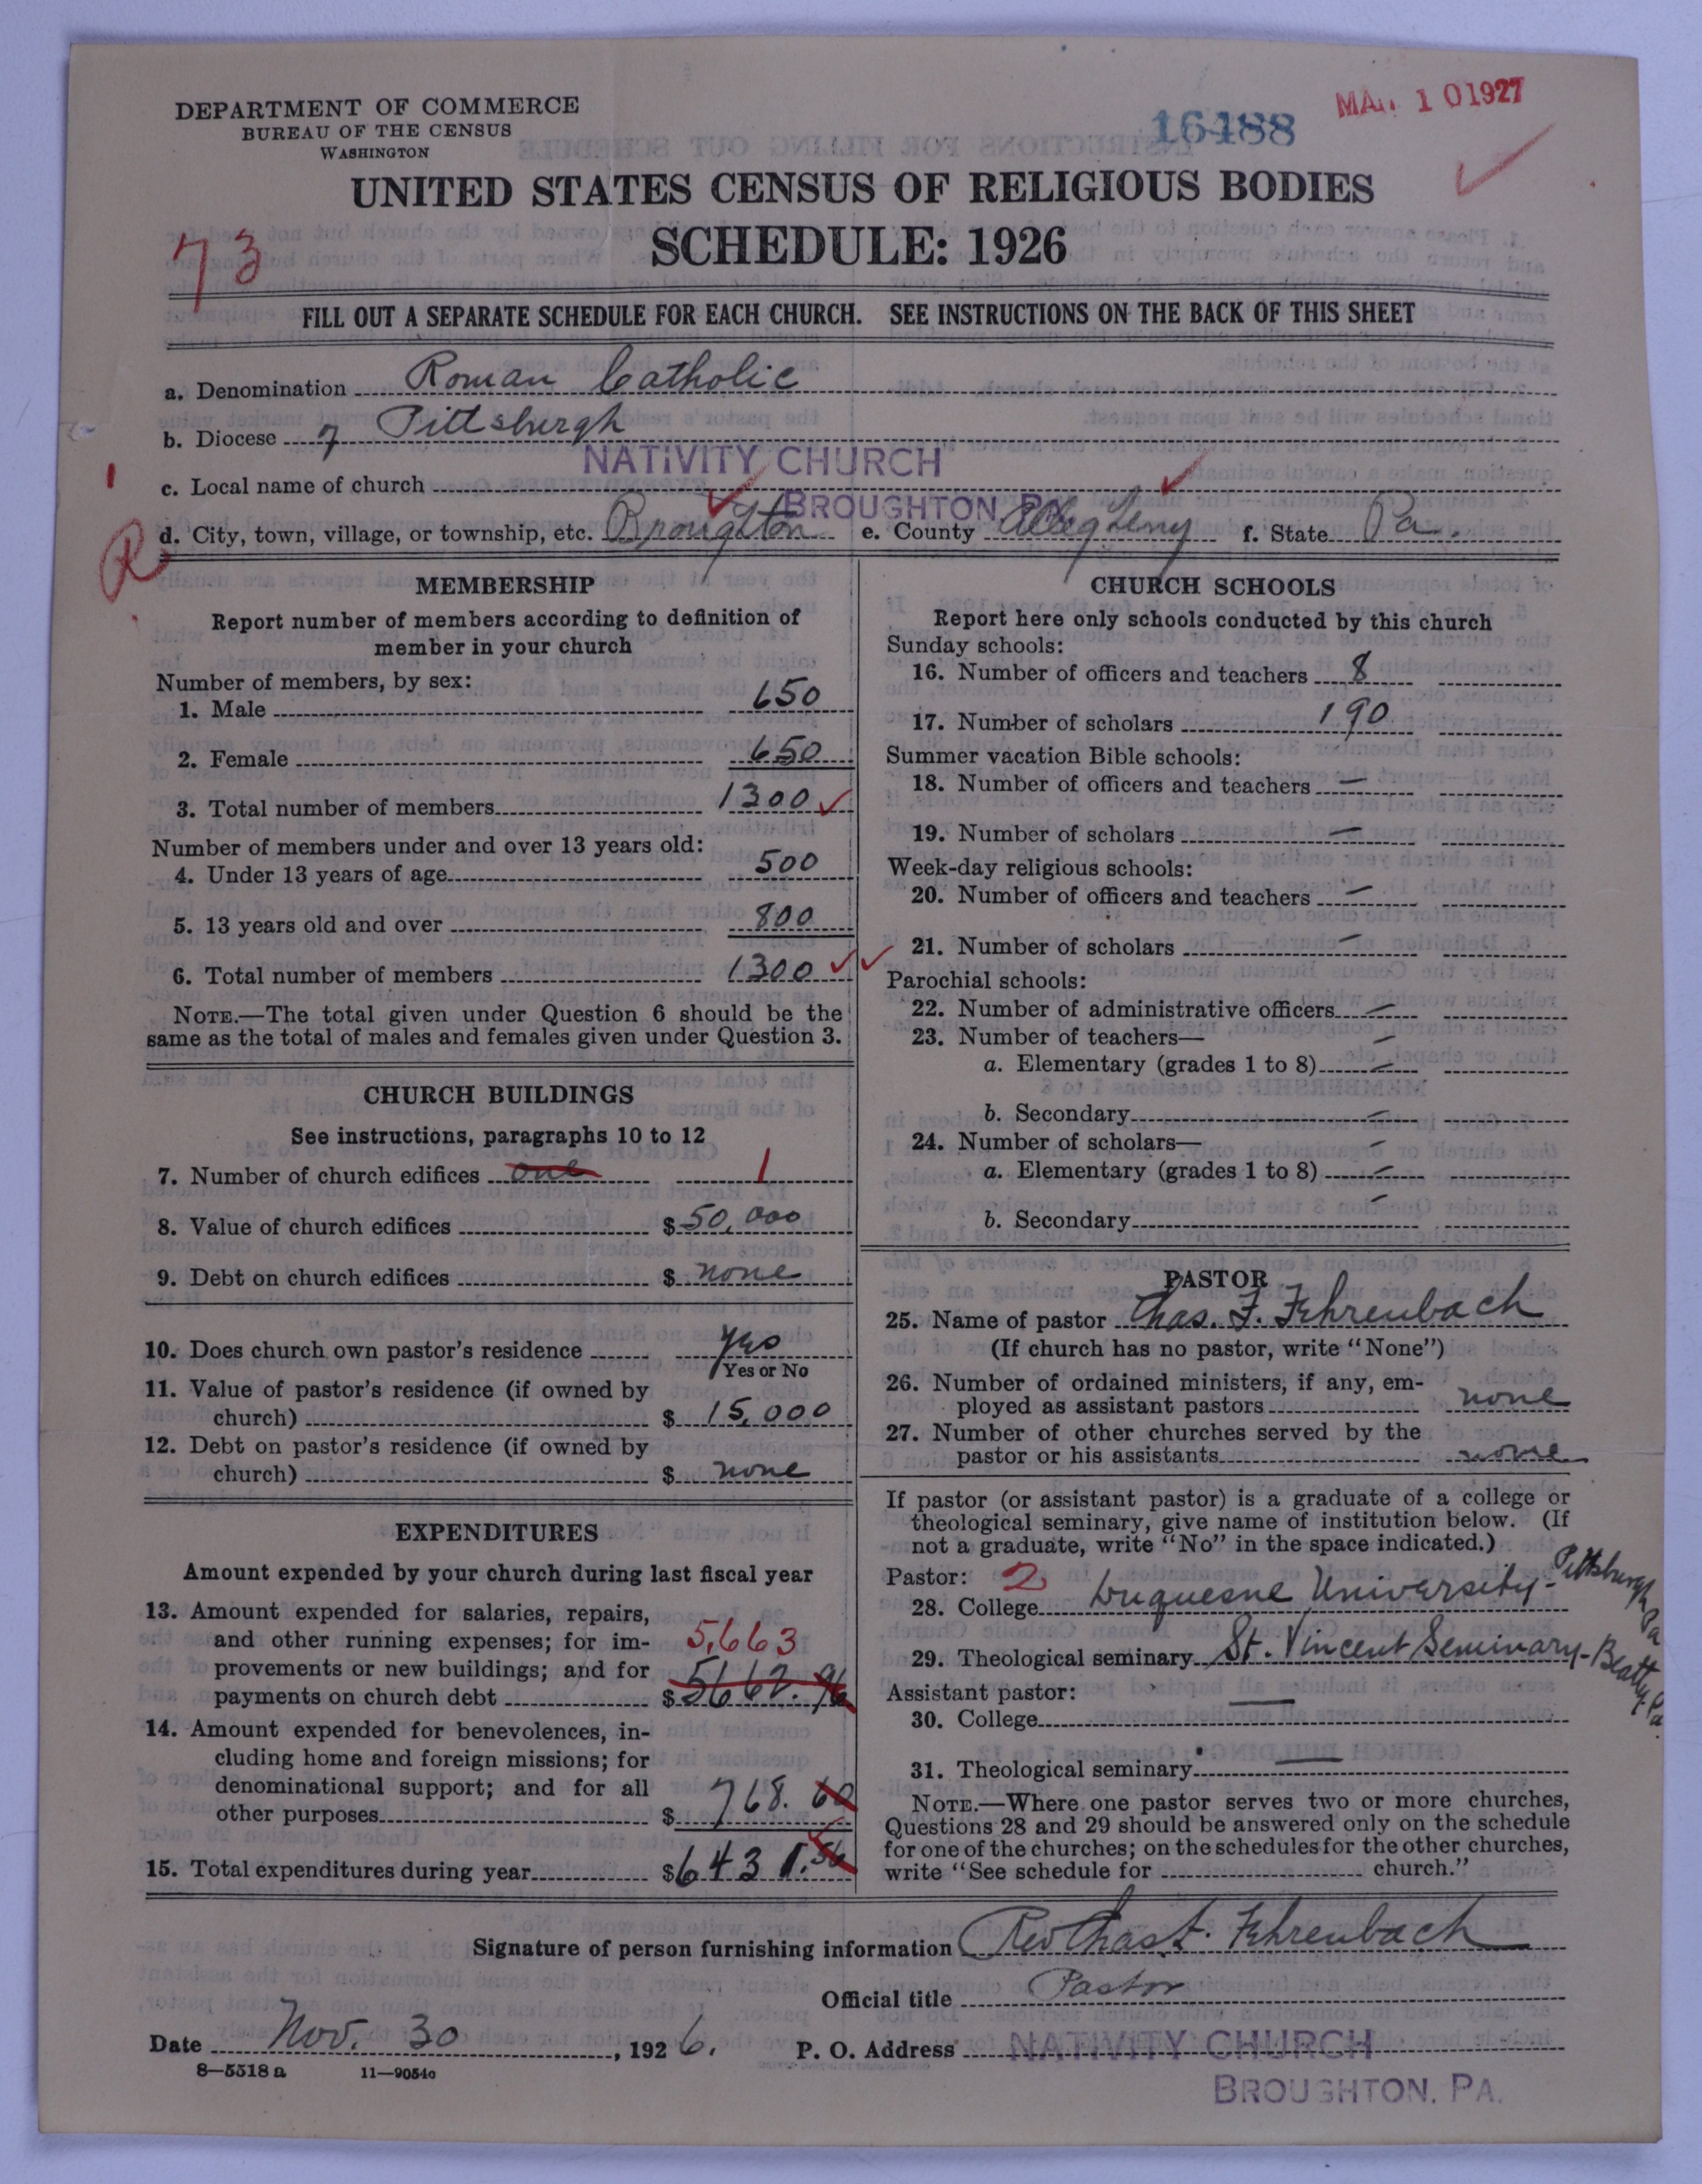 DEPARTMENT OF COMMERCE
BUREAU OF THE CENSUS
WASHINGTON
16488
MAR 10 1927
UNITED STATES CENSUS OF RELIGIOUS BODIES
SCHEDULE: 1926
73
FILL OUT A SEPARATE SCHEDULE FOR EACH CHURCH. SEE INSTRUCTIONS ON THE BACK OF THIS SHEET
a. Denomination Roman Catholic
b. Diocese of Pittsburgh
NATIVITY CHURCH
c. Local name of church
BROUGHTON, PA.
R
d. City, town, village, or township, etc. Broughton e. County Allegheny f. State Pa.
MEMBERSHIP
Report number of members according to definition of
member in your church
Number of members, by sex:
1. Male 650
2. Female 650
3. Total number of members 1300
Number of members under and over 13 years old:
4. Under 13 years of age 500
5. 13 years old and over 800
6. Total number of members 1300
NOTE.—The total given under Question 6 should be the
same as the total of males and females given under Question 3.
CHURCH BUILDINGS
See instructions, paragraphs 10 to 12
7. Number of church edifices one 1
8. Value of church edifices $ 50,000
9. Debt on church edifices $ none
10. Does church own pastor's residence yes
Yes or No
11. Value of pastor's residence (if owned by
church) $ 15,000
12. Debt on pastor's residence (if owned by
church) $ none
EXPENDITURES
Amount expended by your church during last fiscal year
13. Amount expended for salaries, repairs,
and other running expenses; for im- 5,663
provements or new buildings; and for
payments on church debt $ 5662.96
14. Amount expended for benevolences, in-
cluding home and foreign missions; for
denominational support; and for all
other purposes $ 768.60
15. Total expenditures during year $ 6431.56
CHURCH SCHOOLS
Report here only schools conducted by this church
Sunday schools:
16. Number of officers and teachers 8
17. Number of scholars 190
Summer vacation Bible schools:
18. Number of officers and teachers —
19. Number of scholars —
Week-day religious schools:
20. Number of officers and teachers —
21. Number of scholars —
Parochial schools:
22. Number of administrative officers —
23. Number of teachers— —
a. Elementary (grades 1 to 8) —
b. Secondary —
24. Number of scholars— —
a. Elementary (grades 1 to 8) —
b. Secondary —
PASTOR
25. Name of pastor Chas. F. Fehrenbach
(If church has no pastor, write "None")
26. Number of ordained ministers, if any, em-
ployed as assistant pastors none
27. Number of other churches served by the
pastor or his assistants none
If pastor (or assistant pastor) is a graduate of a college or
theological seminary, give name of institution below. (If
not a graduate, write "No" in the space indicated.)
Pastor: 2
28. College Duquesne University - Pittsburgh Pa
29. Theological seminary St. Vincent Seminary - Beatty, Pa.
Assistant pastor:
30. College —
31. Theological seminary —
NOTE.—Where one pastor serves two or more churches,
Questions 28 and 29 should be answered only on the schedule
for one of the churches; on the schedules for the other churches,
write "See schedule for church."
Signature of person furnishing information Rev Chas F. Fehrenbach
Official title Pastor
Date Nov. 30, 1926. P. O. Address NATIVITY CHURCH
8—5518 a 11—9054o
BROUGHTON, PA.